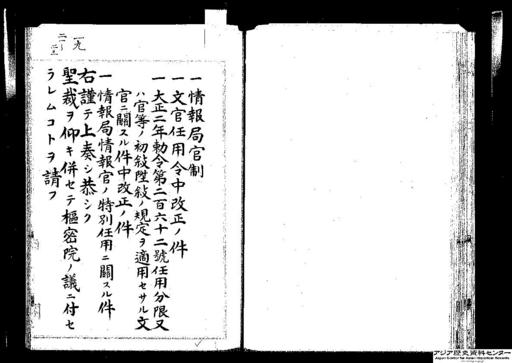 一九
二一ノ三
一情報局官制
一文官任用令中改正ノ件
一大正二年勅令第二百六十二號任用分限又
ハ官等ノ初敍陞敍ノ規定ヲ適用セサル文
官ニ關スル件中改正ノ件
一情報局情報官ノ特別任用ニ關スル件
右謹テ上奏シ恭シク
聖裁ヲ仰キ併セテ樞密院ノ議ニ付セ
ラレムコトヲ請フ
アジア歴史資料センター
Japan Center for Asian Historical Records